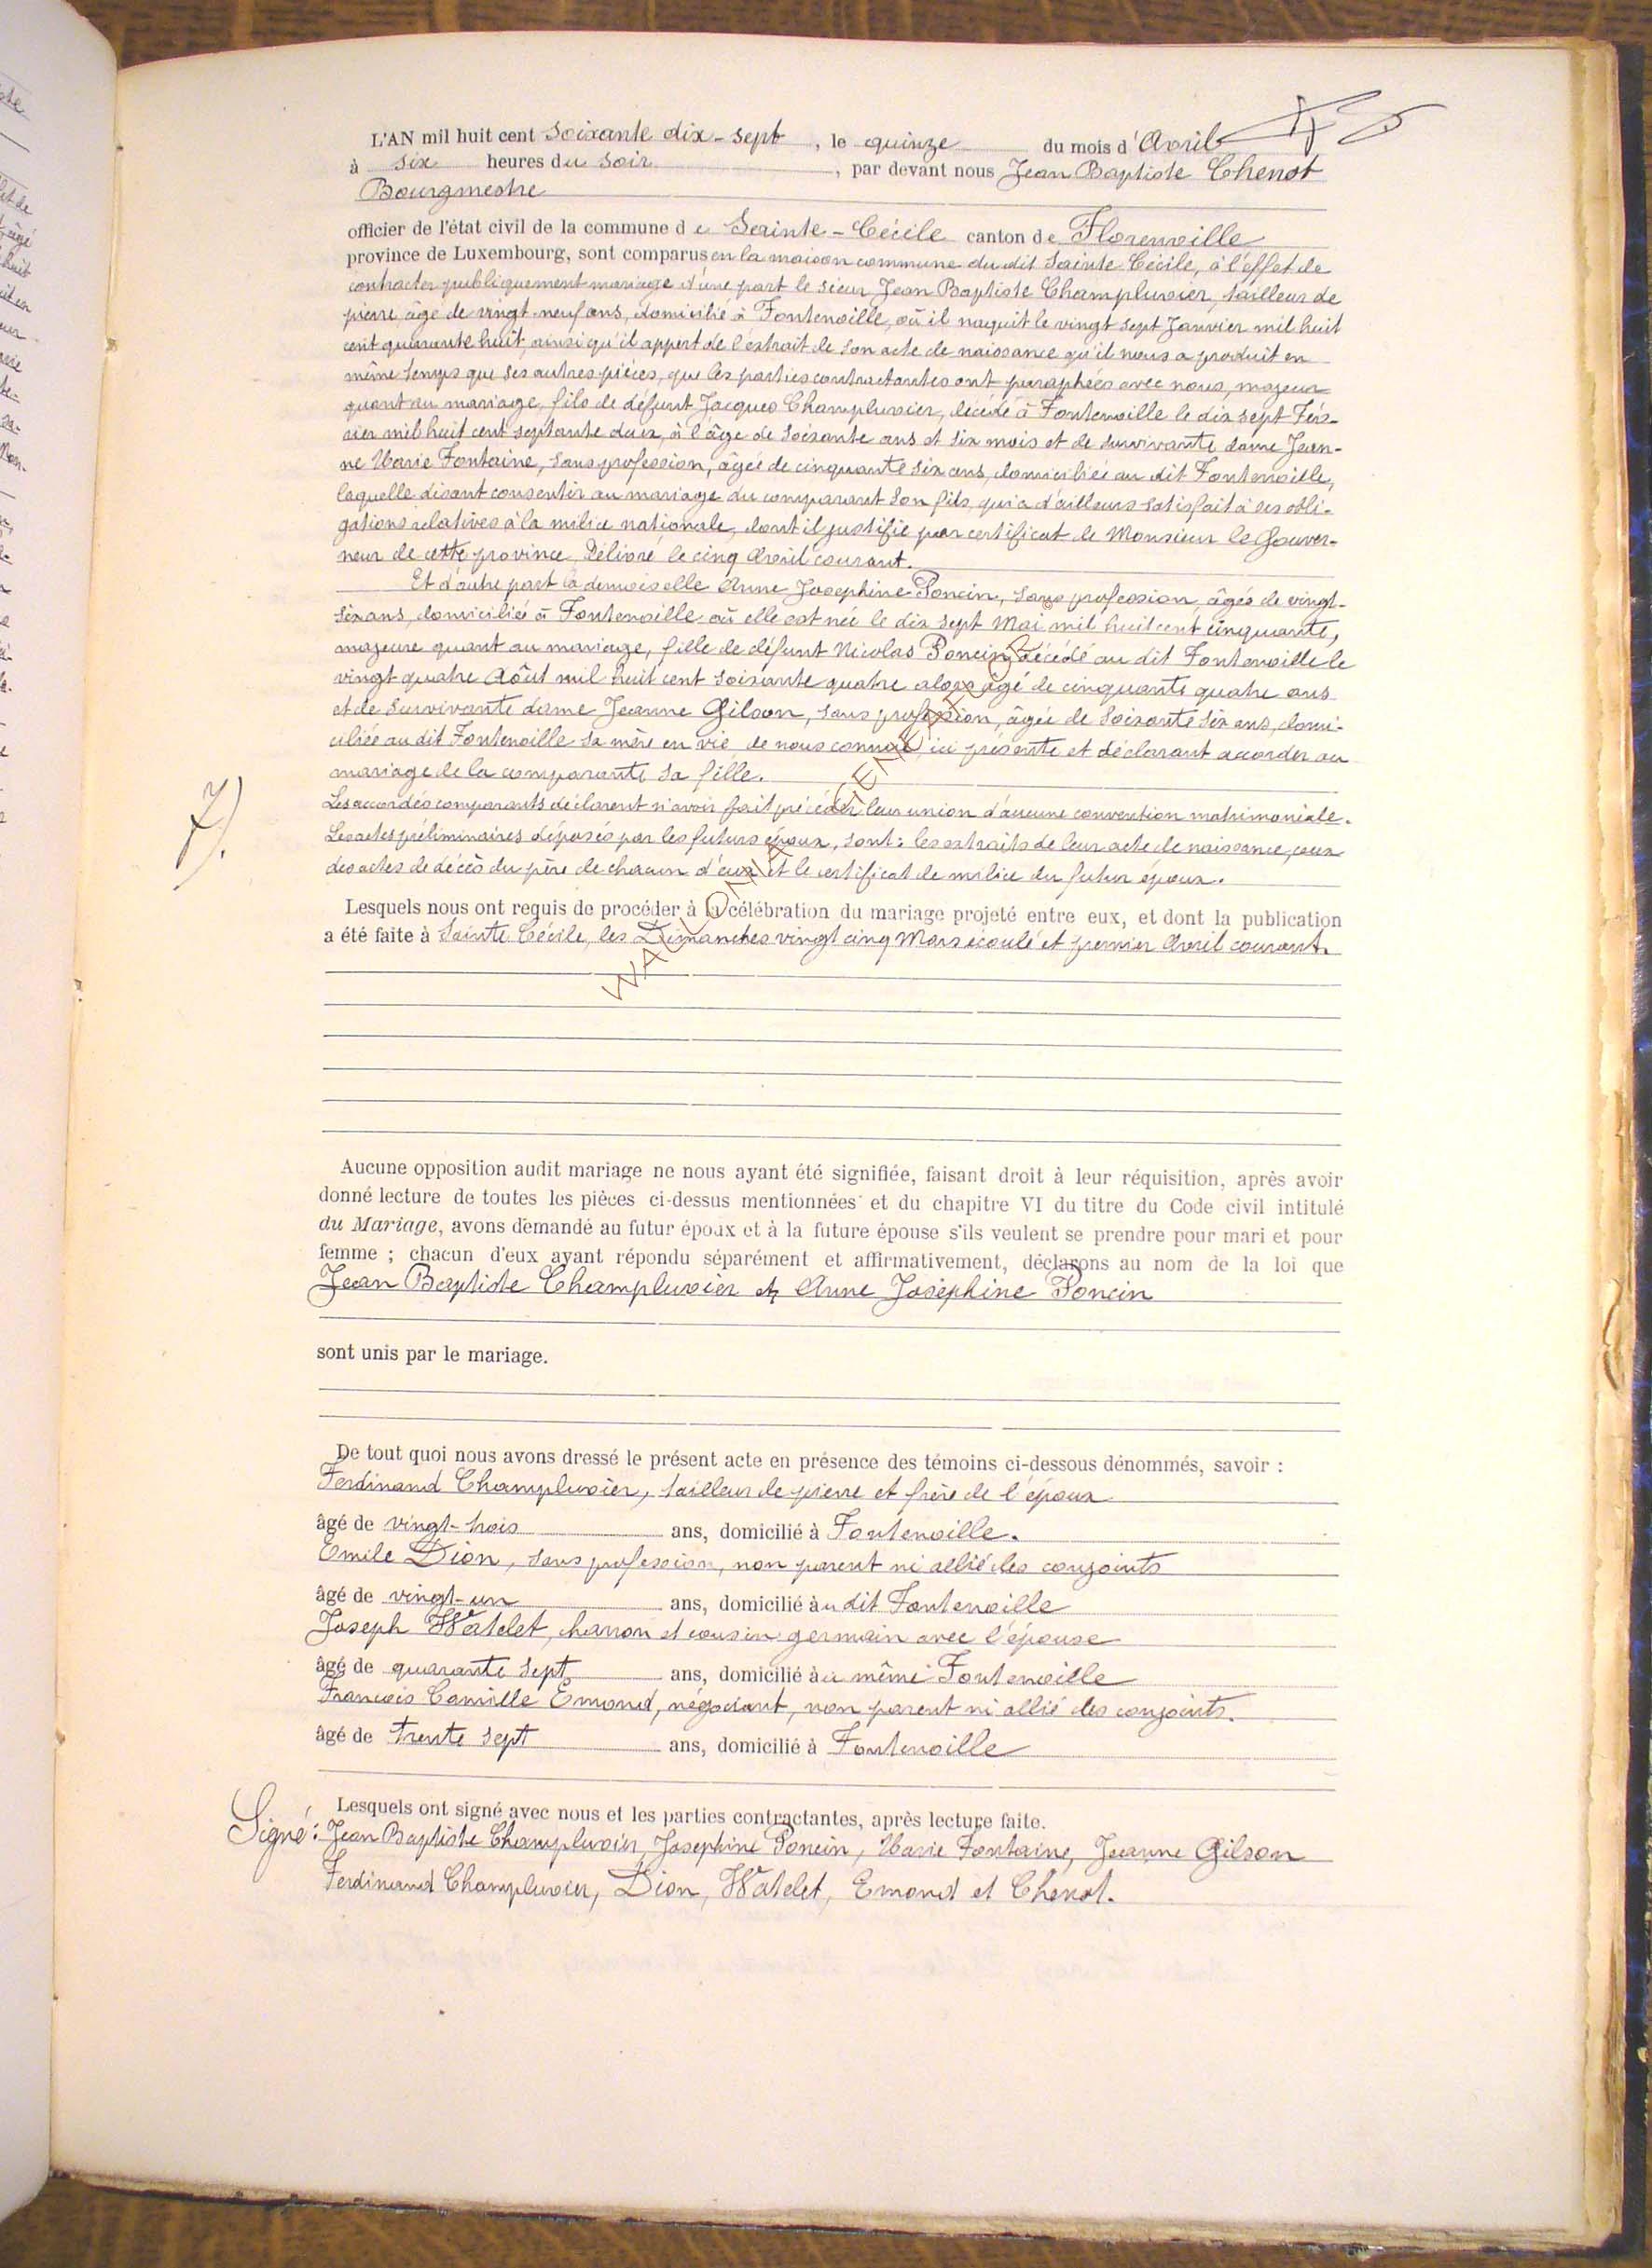 L'AN mil huit cent soixante dix-sept, le quinze du mois d'Avril
à six heures du soir, par devant nous Jean Baptiste Chenot
Bourgmestre
officier de l'état civil de la commune de Sainte-Cécile canton de Florenville
province de Luxembourg, sont comparus en la maison commune du dit Sainte Cécile, à l'effet de
contracter publiquement mariage d'une part le sieur Jean Baptiste Champluvier, tailleur de
pierre, âgé de vingt-neuf ans, domicilié à Fontenoille, où il naquit le vingt sept Janvier mil huit
cent quarante huit, ainsi qu'il appert de l'extrait de son acte de naissance qu'il nous a produit en
même temps que ses autres pièces, que les parties contractantes ont paraphées avec nous, majeur
quant au mariage, fils de défunt Jacques Champluvier, décédé à Fontenoille le dix sept Fév-
rier mil huit cent septante deux, à l'âge de soixante ans et six mois et de survivante dame Jean-
ne Marie Fontaine, sans profession, âgée de cinquante six ans, domiciliée au dit Fontenoille,
laquelle disant consentir au mariage du comparant son fils, qui a d'ailleurs satisfait à ses obli-
gations relatives à la milice nationale, dont il justifie par certificat de Monsieur le Gouver-
neur de cette province, délivré le cinq Avril courant.
Et d'autre part la demoiselle Anne Josephine Poncin, sans profession, âgée de vingt-
six ans, domiciliée à Fontenoille où elle est née le dix sept Mai mil huit cent cinquante,
majeure quant au mariage, fille de défunt Nicolas Poncin, décédé au dit Fontenoille le
vingt quatre Aôut mil huit cent soixante quatre alors âgé de cinquante quatre ans
et de survivante dame Jeanne Gilson, sans profession, âgée de soixante six ans, domi-
ciliée au dit Fontenoille sa mère en vie de nous connue ici présente et déclarant accorder au
mariage de la comparante sa fille.
7).
Les accordés comparants déclarent n'avoir fait précéder leur union d'aucune convention matrimoniale.
Les actes préliminaires déposés par les futurs époux, sont: les extraits de leur acte de naissance, ceux
des actes de décès du père de chacun d'eux et le certificat de milice du futur époux.
Lesquels nous ont requis de procéder à la célébration du mariage projeté entre eux, et dont la publication
a été faite à Sainte Cécile, les Dimanches vingt cinq Mars écoulé et premier Avril courant.
Aucune opposition audit mariage ne nous ayant été signifiée, faisant droit à leur réquisition, après avoir
donné lecture de toutes les pièces ci-dessus mentionnées et du chapitre VI du titre du Code civil intitulé
du Mariage, avons demandé au futur époux et à la future épouse s'ils veulent se prendre pour mari et pour
femme ; chacun d'eux ayant répondu séparément et affirmativement, déclarons au nom de la loi que
Jean Baptiste Champluvier et Anne Joséphine Poncin
sont unis par le mariage.
De tout quoi nous avons dressé le présent acte en présence des témoins ci-dessous dénommés, savoir :
Ferdinand Champluvier, tailleur de pierre et frère de l'époux
âgé de vingt-trois ans, domicilié à Fontenoille.
Emile Dion, sans profession, non parent ni allié des conjoints
âgé de vingt-un ans, domicilié au dit Fontenoille
Joseph Watelet, charron et cousin germain avec l'épouse
âgé de quarante sept ans, domicilié au même Fontenoille
François Camille Emond, négociant, non parent ni allié des conjoints.
âgé de trente sept ans, domicilié à Fontenoille
Lesquels ont signé avec nous et les parties contractantes, après lecture faite.
Signé: Jean Baptiste Champluvier, Josephine Poncin, Marie Fontaine, Jeanne Gilson
Ferdinand Champluvier, Dion, Watelet, Emond et Chenot.